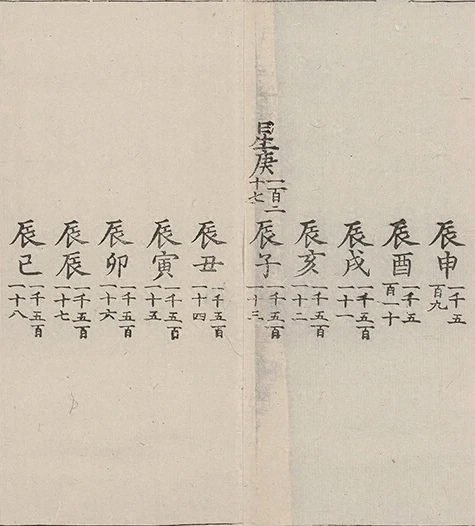 辰申一千五百九
辰酉一千五百一十
辰戌一千五百一十一
辰亥一千五百一十二
星庚一百二十七辰子一千五百一十三
辰丑一千五百一十四
辰寅一千五百一十五
辰卯一千五百一十六
辰辰一千五百一十七
辰巳一千五百一十八